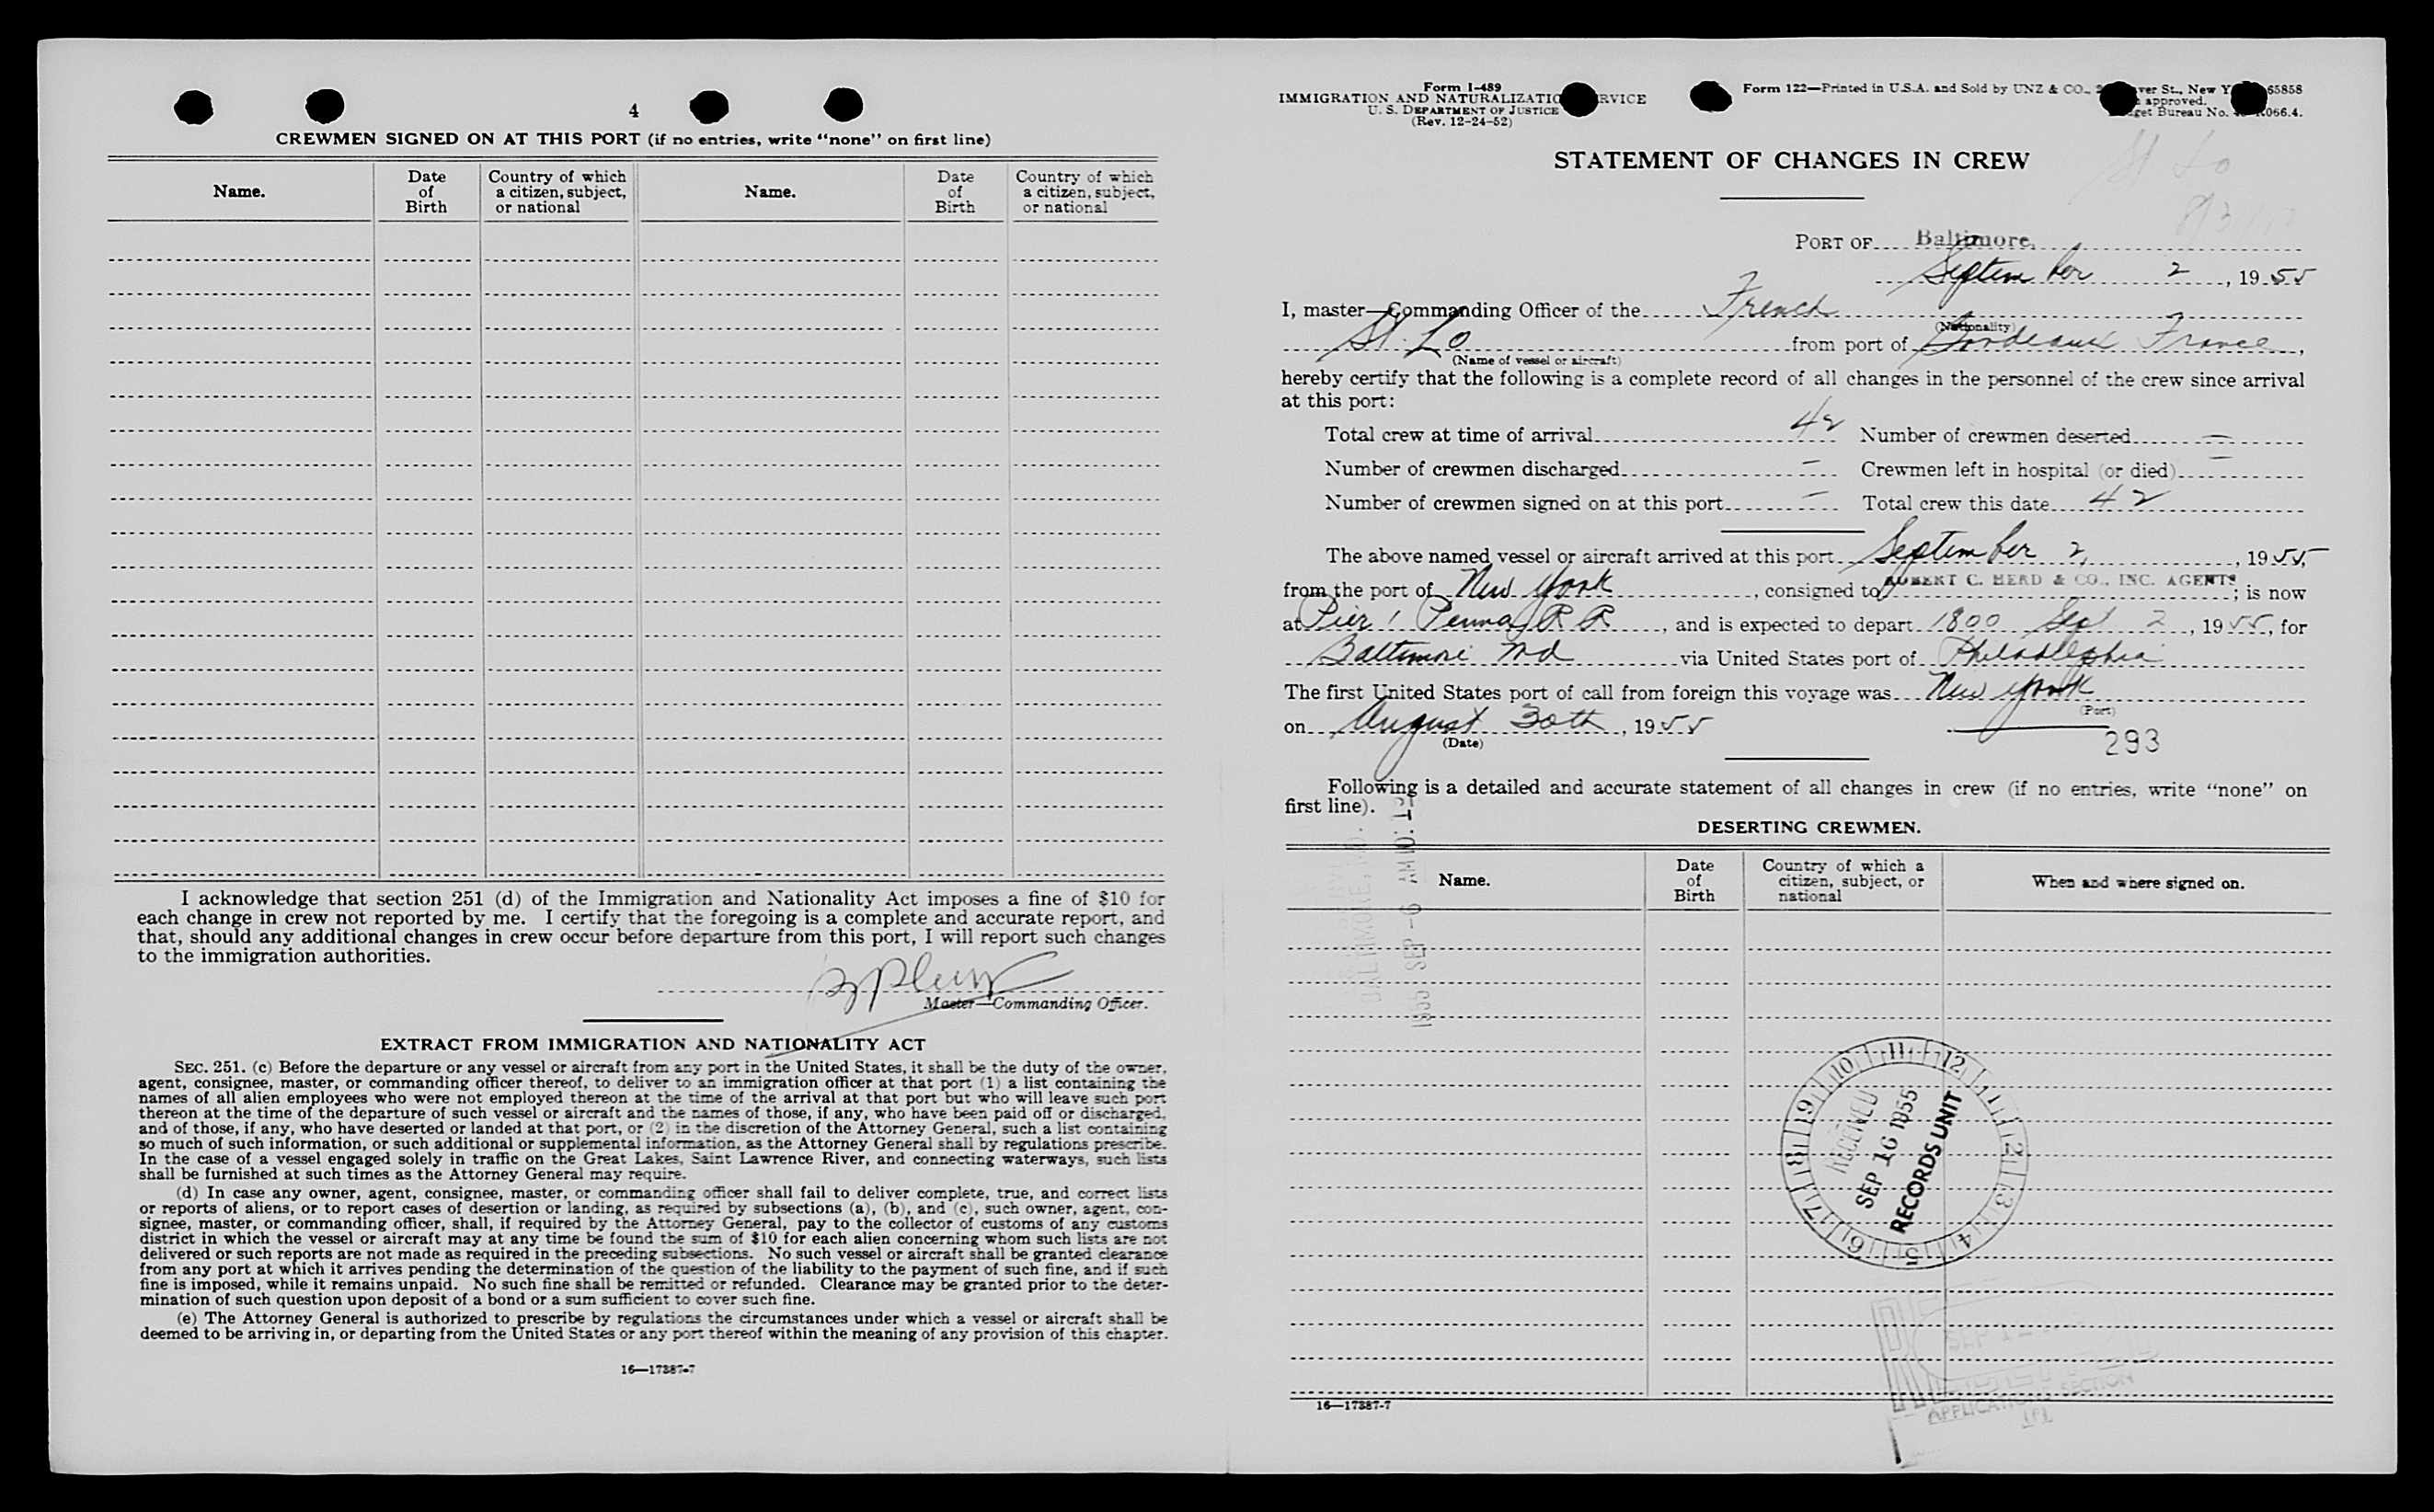 4
CREWMEN SIGNED ON AT THIS PORT (if no entries, write "none" on first line)
Name. Date of Birth Country of which a citizen, subject, or national Name. Date of Birth Country of which a citizen, subject, or national
I acknowledge that section 251 (d) of the Immigration and Nationality Act imposes a fine of $10 for
each change in crew not reported by me. I certify that the foregoing is a complete and accurate report, and
that, should any additional changes in crew occur before departure from this port, I will report such changes
to the immigration authorities.
Master—Commanding Officer.
EXTRACT FROM IMMIGRATION AND NATIONALITY ACT
SEC. 251. (c) Before the departure or any vessel or aircraft from any port in the United States, it shall be the duty of the owner,
agent, consignee, master, or commanding officer thereof, to deliver to an immigration officer at that port (1) a list containing the
names of all alien employees who were not employed thereon at the time of the arrival at that port but who will leave such port
thereon at the time of the departure of such vessel or aircraft and the names of those, if any, who have been paid off or discharged,
and of those, if any, who have deserted or landed at that port, or (2) in the discretion of the Attorney General, such a list containing
so much of such information, or such additional or supplemental information, as the Attorney General shall by regulations prescribe.
In the case of a vessel engaged solely in traffic on the Great Lakes, Saint Lawrence River, and connecting waterways, such lists
shall be furnished at such times as the Attorney General may require.
(d) In case any owner, agent, consignee, master, or commanding officer shall fail to deliver complete, true, and correct lists
or reports of aliens, or to report cases of desertion or landing, as required by subsections (a), (b), and (c), such owner, agent, con-
signee, master, or commanding officer, shall, if required by the Attorney General, pay to the collector of customs of any customs
district in which the vessel or aircraft may at any time be found the sum of $10 for each alien concerning whom such lists are not
delivered or such reports are not made as required in the preceding subsections. No such vessel or aircraft shall be granted clearance
from any port at which it arrives pending the determination of the question of the liability to the payment of such fine, and if such
fine is imposed, while it remains unpaid. No such fine shall be remitted or refunded. Clearance may be granted prior to the deter-
mination of such question upon deposit of a bond or a sum sufficient to cover such fine.
(e) The Attorney General is authorized to prescribe by regulations the circumstances under which a vessel or aircraft shall be
deemed to be arriving in, or departing from the United States or any port thereof within the meaning of any provision of this chapter.
16—17387-7
Form I-489
IMMIGRATION AND NATURALIZATIO RVICE
U. S. DEPARTMENT OF JUSTICE
(Rev. 12-24-52)
Form 122—Printed in U.S.A. and Sold by UNZ & CO., ver St., New Y 65858
approved.
get Bureau No. R066.4.
St Lo
STATEMENT OF CHANGES IN CREW
PORT OF Baltimore,
September 2, 1955
I, master—Commanding Officer of the French
(Nationality)
St. Lo from port of Bordeaux France,
(Name of vessel or aircraft)
hereby certify that the following is a complete record of all changes in the personnel of the crew since arrival
at this port:
Total crew at time of arrival 42 Number of crewmen deserted —
Number of crewmen discharged — Crewmen left in hospital (or died) —
Number of crewmen signed on at this port — Total crew this date 42
The above named vessel or aircraft arrived at this port September 2, 1955,
from the port of New York, consigned to ROBERT C. HERD & CO., INC. AGENTS; is now
at Pier 1 Penna R R, and is expected to depart 1800 Sept 2, 1955, for
Baltimore Md via United States port of Philadelphia
The first United States port of call from foreign this voyage was New York
(Port)
on August 30th, 1955
(Date)
293
Following is a detailed and accurate statement of all changes in crew (if no entries, write "none" on
first line).
DESERTING CREWMEN.
Name. Date of Birth Country of which a citizen, subject, or national When and where signed on.
BALTIMORE,
1955 SEP -6 AM
10 11 12 1 2 3 4 5 6 7 8 9
RECEIVED
SEP 16 1955
RECORDS UNIT
SECTION
16—17387-7